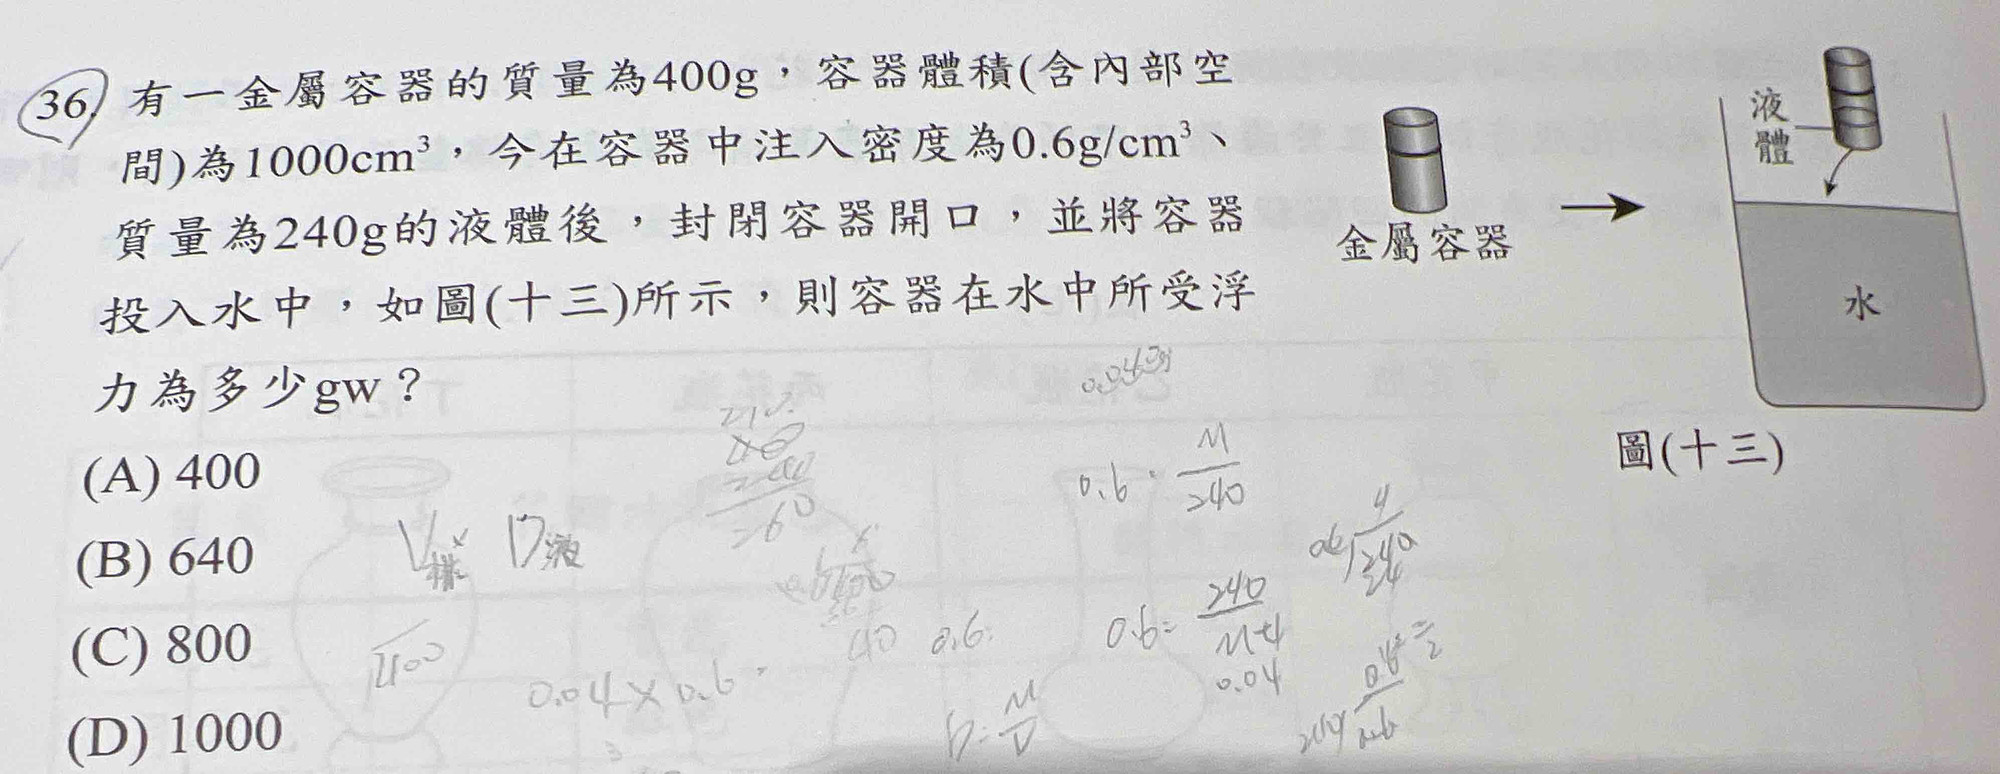 36. 有一金屬容器的質量為400g，容器體積(含內部空
間)為1000cm³，今在容器中注入密度為0.6g/cm³、
質量為240g的液體後，封閉容器開口，並將容器
投入水中，如圖(十三)所示，則容器在水中所受浮
力為多少gw？
(A) 400
(B) 640
(C) 800
(D) 1000
金屬容器
液
體
水
圖(十三)
0.6 = M/240
V排 × D液
400
0.04 × 0.6
40
0.6
0.6 = 240/M
0.04
D = M/V